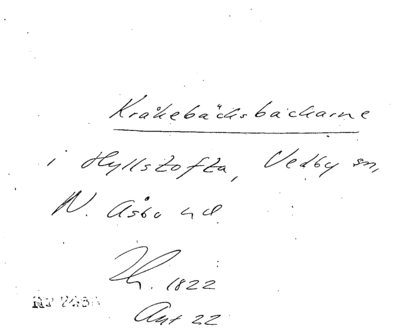 Kråkebäcksbäckarne
i Hyllstofta, Vedby sn,
N. Åsbo hd
Th. 1822
Ant 22